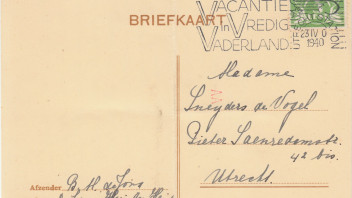 VACANTIE
BRIEFKAART
in VREDIG
VADERLAND
23 IV 0
1940
Madame
Sneyders de Vogel
Pieter Saenredamstr.
42 bis.
Utrecht.
Afzender B. H. de Jong